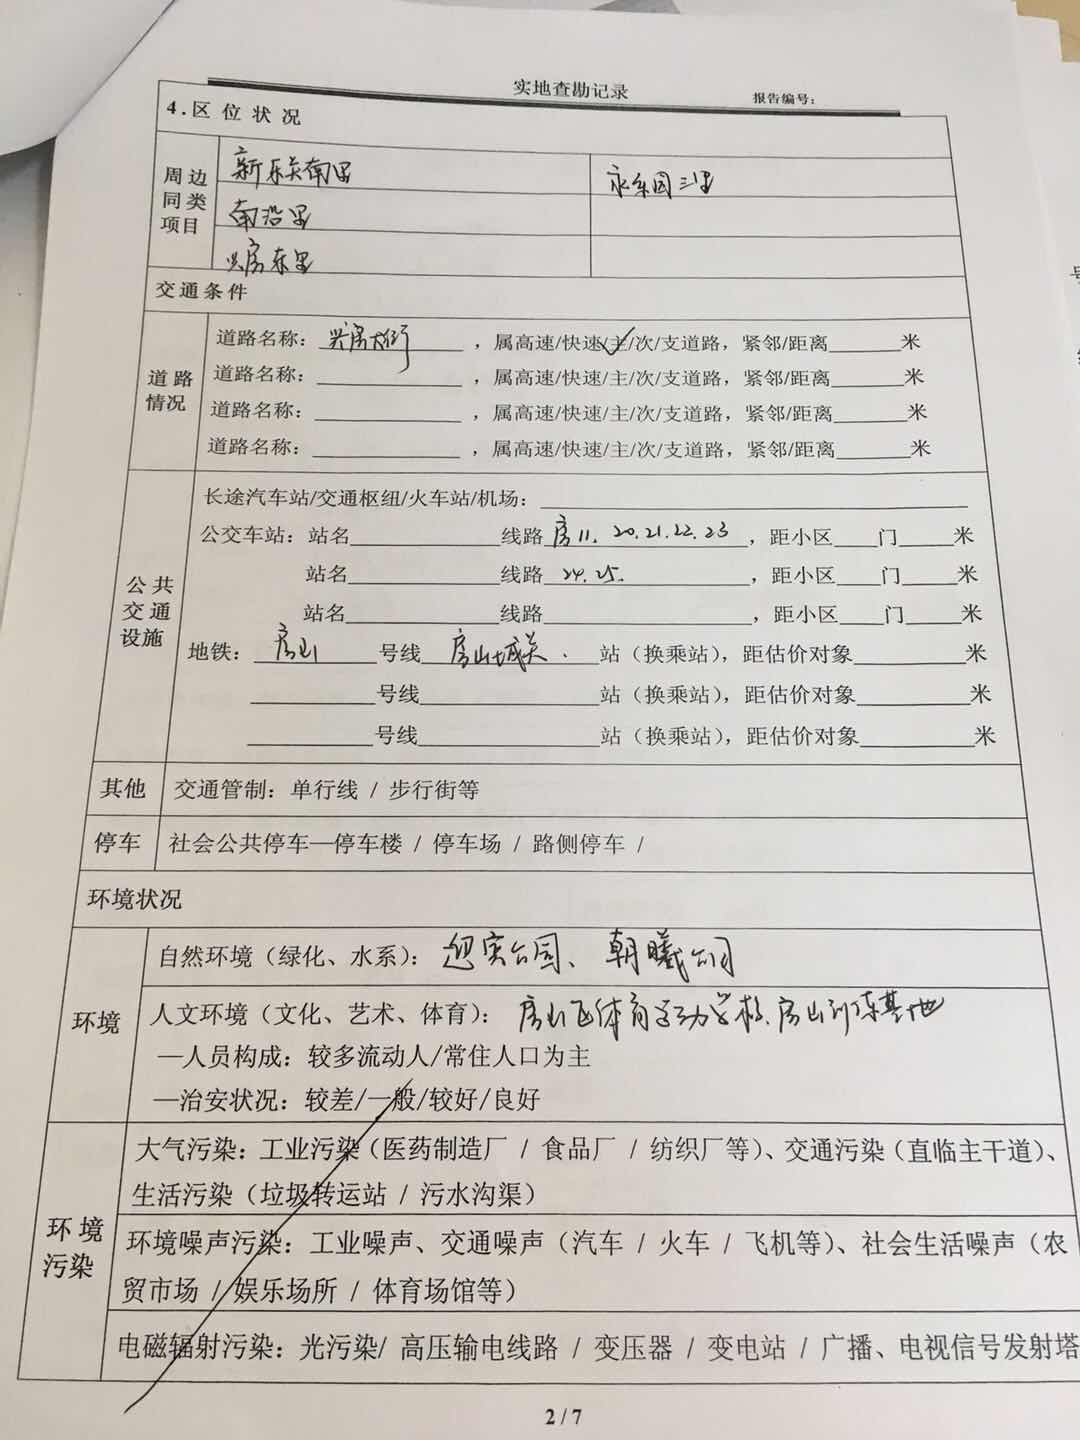 实地查勘记录 报告编号：
4.区位状况
周边同类项目 新东关南里 永乐园三里
南沿里
兴房东里
交通条件
道路情况 道路名称：兴房大街，属高速/快速/主/次/支道路，紧邻/距离______米
道路名称：____________，属高速/快速/主/次/支道路，紧邻/距离______米
道路名称：____________，属高速/快速/主/次/支道路，紧邻/距离______米
道路名称：____________，属高速/快速/主/次/支道路，紧邻/距离______米
公共交通设施 长途汽车站/交通枢纽/火车站/机场：____________
公交车站：站名____________线路 房11. 20.21.22.23，距小区____门_____米
站名____________线路 24.25.，距小区____门_____米
站名____________线路____________，距小区____门_____米
地铁：房山 号线 房山城关 站（换乘站），距估价对象_________米
__________号线____________站（换乘站），距估价对象_________米
__________号线____________站（换乘站），距估价对象_________米
其他 交通管制：单行线 / 步行街等
停车 社会公共停车—停车楼 / 停车场 / 路侧停车 /
环境状况
环境 自然环境（绿化、水系）：迎宾公园、朝曦公园
人文环境（文化、艺术、体育）：房山区体育运动学校、房山训练基地
—人员构成：较多流动人/常住人口为主
—治安状况：较差/一般/较好/良好
环境污染 大气污染：工业污染（医药制造厂 / 食品厂 / 纺织厂等）、交通污染（直临主干道）、
生活污染（垃圾转运站 / 污水沟渠）
环境噪声污染：工业噪声、交通噪声（汽车 / 火车 / 飞机等）、社会生活噪声（农
贸市场 / 娱乐场所 / 体育场馆等）
电磁辐射污染：光污染/ 高压输电线路 / 变压器 / 变电站 / 广播、电视信号发射塔
2 / 7